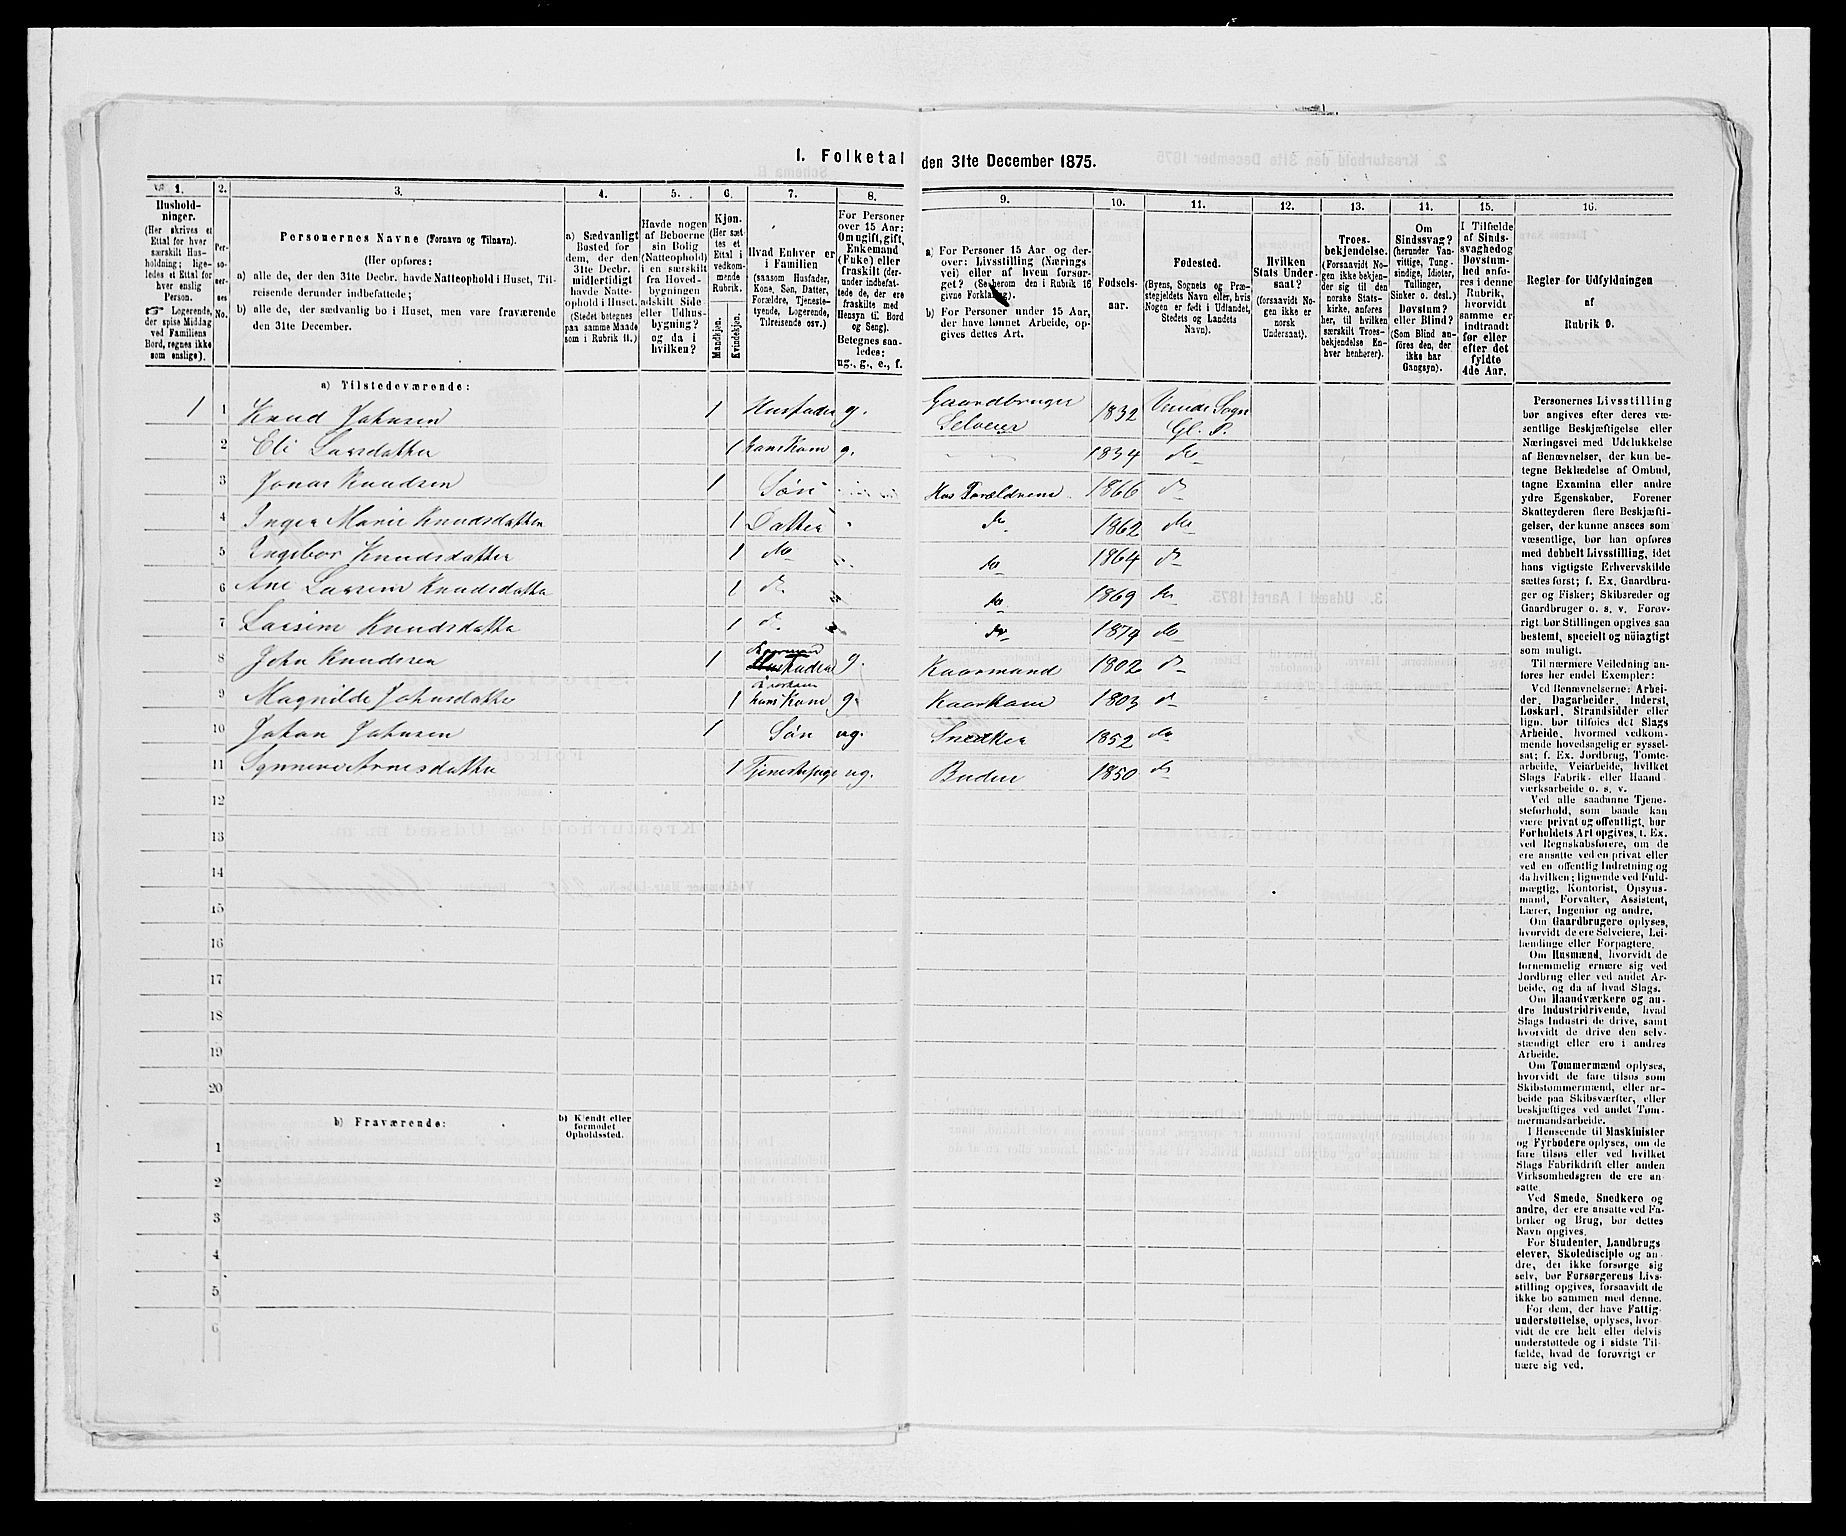 1. Folketal den 31te December 1875.
1.
2.
3.
4.
5.
6.
7.
8.
9.
10.
11.
12.
13.
14.
15.
16.
Hushold-
ninger.
(Her skrives et
Ettal for hver
særskilt Hus-
holdning; lige-
ledes et Ettal for
hver enslig
Person.
☞ Logerende,
der spise Middag
ved Familiens
Bord, regnes ikke
som enslige).
Per-
so-
ner-
nes
No.
Personernes Navne (Fornavn og Tilnavn).
(Her opføres:
a) alle de, der den 31te Decbr. havde Natteophold i Huset, Til-
reisende derunder indbefattede;
b) alle de, der sædvanlig bo i Huset, men vare fraværende
den 31te December.
a) Sædvanligt
Bosted for
dem, der den
31te Decbr.
midlertidigt
havde Natte-
ophold i Huset.
(Stedet betegnes
paa samme Maade
som i Rubrik 11.)
Havde nogen
af Beboerne
sin Bolig
(Natteophold)
i en særskilt
fra Hoved-
bygningen
adskilt Side
eller Udhus-
bygning?
og da i
hvilken?
Kjøn.
(Her sæt-
tes et
Ettal i
vedkom-
mende
Rubrik.
Mandkjøn.
Kvindekjøn.
Hvad Enhver er
i Familien
(saasom Husfader,
Kone, Søn, Datter,
Forældre, Tjeneste-
tyende, Logerende,
Tilreisende osv.)
For Personer
over 15 Aar:
Om ugift, gift,
Enkemand
(Enke) eller
fraskilt (der-
under indbefat-
tede de, der ere
fraskilte med
Hensyn til Bord
og Seng).
Betegnes saa-
ledes:
ug., g., e., f.
a) For Personer 15 Aar og der-
over: Livsstilling (Nærings
vei) eller af hvem forsør-
get? (Se herom den i Rubrik 16
givne Forklaring).
b) For Personer under 15 Aar,
der have lønnet Arbeide, op-
gives dettes Art.
Fødsels-
aar.
Fødested.
(Byens, Sognets og Præ-
stegjeldets Navn eller, hvis
Nogen er født i Udlandet,
Stedets og Landets
Navn).
Hvilken
Stats Under-
saat?
(forsaavidt No-
gen ikke er
norsk
Undersaat).
Troes-
bekjendelse.
(Forsaavidt No-
gen ikke bekjen-
der sig til den
norske Stats-
kirke, anføres
her, til hvilken
særskilt Troes-
bekjendelse En-
hver henhører).
Om
Sindssvag?
(herunder Van-
vittige, Tung-
sindige, Idioter,
Tullinger,
Sinker o. desl.)
Døvstum?
eller Blind?
(Som Blind an-
føres den, der
ikke har
Gangsyn).
I Tilfælde
af Sinds-
svaghed og
Døvstum-
hed anfø-
res i denne
Rubrik,
hvorvidt
samme er
indtraadt
før eller
efter det
fyldte
4de Aar.
Regler for Udfyldningen
af
Rubrik 9.
a) Tilstedeværende:
1 1 Knud Johnsen 1 Husfader g. Gaardbruger Selveier 1832 Sogn Gl. P.
2 Eli Larsdatter 1 hans Kone g. 1834 do
3 Jonas Knudsen 1 Søn Hos Forældrene 1866 do
4 Inger Marie Knudsdatter 1 Datter do 1862 do
5 Ingebor Knudsdatter 1 do do 1864 do
6 Ane Larsine Knudsdatter 1 do do 1869 do
7 Larsine Knudsdatter 1 do do 1874 do
8 John Knudsen 1 Kaarmand Husfader g. Kaarmand 1802 do
9 Magnilde Johnsdatter 1 Kaarkone hans Kone g. Kaarkone 1803 do
10 Johan Johnsen 1 Søn ug. Snedker 1852 do
11 Synneve Arnesdatter 1 Tjenestepige ug. Budeie 1850 do
12
13
14
15
16
17
18
19
20
b) Fraværende:
b) Kjendt eller
formodet
Opholdssted.
1
2
3
4
5
6
Personernes Livsstilling
bør angives efter deres væ-
sentlige Beskjæftigelse eller
Næringsvei med Udelukkelse
af Benævnelser, der kun be-
tegne Beklædelse af Ombud,
tagne Examina eller andre
ydre Egenskaber. Forener
Skatteyderen flere Beskjæfti-
gelser, der kunne ansees som
væsentlige, bør han opføres
med dobbelt Livsstilling, idet
hans vigtigste Erhvervskilde
sættes først; f. Ex. Gaardbru-
ger og Fisker; Skibsreder og
Gaardbruger o. s. v. Forøv-
rigt bør Stillingen opgives saa
bestemt, specielt og nøiagtigt
som muligt.
Til nærmere Veiledning an-
føres her endel Exempler:
Ved Benævnelserne: Arbei-
der, Dagarbeider, Inderst,
Løskarl, Strandsidder eller
lign. bør tilføies det Slags
Arbeide, hvormed vedkom-
mende hovedsagelig er syssel-
sat; f. Ex. Jordbrug, Tomte-
arbeide, Veiarbeide, hvilket
Slags Fabrik- eller Haand-
værksarbeide o. s. v.
Ved alle saadanne Tjene-
steforhold, som baade kan
være privat og offentligt, bør
Forholdets Art opgives, t. Ex.
ved Regnskabsførere, om de
ere ansatte ved en privat eller
ved en offentlig Indretning og
da hvilken; lignende ved Fuld-
mægtig, Kontorist, Opsyns-
mand, Forvalter, Assistent,
Lærer, Ingeniør og andre.
Om Gaardbrugere oplyses,
hvorvidt de ere Selveiere, Lei-
lændinge eller Forpagtere.
Om Husmænd, hvorvidt de
fornemmelig ernære sig ved
Jordbrug eller ved andet Ar-
beide, og da af hvad Slags.
Om Haandværkere og an-
dre Industridrivende, hvad
Slags Industri de drive, samt
hvorvidt de drive den selv-
stændigt eller ere i andres
Arbeide.
Om Tømmermænd oplyses,
hvorvidt de fare tilsøs som
Skibstømmermænd, eller ar-
beide paa Skibsværfter, eller
beskjæftiges ved andet Tøm-
mermandsarbeide.
I Henseende til Maskinister
og Fyrbødere oplyses, om de
fare tilsøs eller ved hvilket
Slags Fabrikdrift eller anden
Virksomhedsgren de ere an-
satte.
Ved Smede, Snedkere og
andre, der ere ansatte ved Fa-
briker og Brug, bør dettes
Navn opgives.
For Studenter, Landbrugs
elever, Skoledisciple og an-
dre, der ikke forsørge sig
selv, bør Forsørgerens Livs-
stilling opgives, forsaavidt de
ikke bo sammen med denne.
For dem, der have Fattig-
understøttelse, oplyses, hvor-
vidt de ere helt eller delvis
understøttede og i sidste Til-
fælde, hvad de forøvrigt er-
nære sig ved.